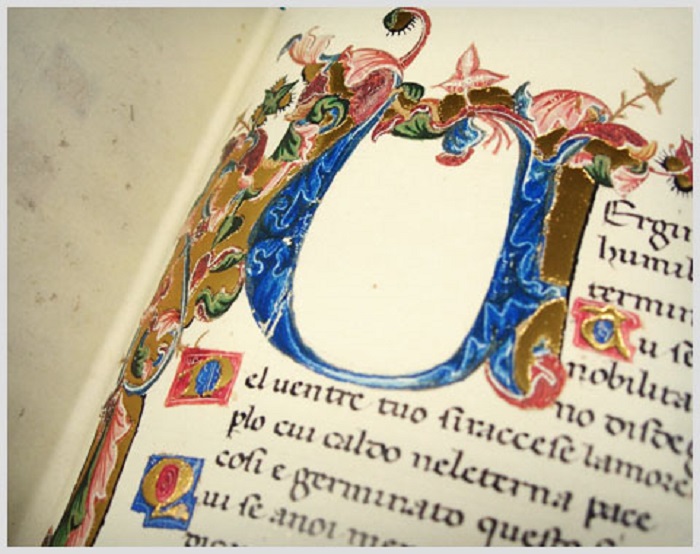 UErgi
humil
termin
Tu se
nobilita
no disdeg
Nel uentre tuo siraccese lamore
plo cui caldo neleterna pace
cosi e germinato questo
Qui se anoi mer